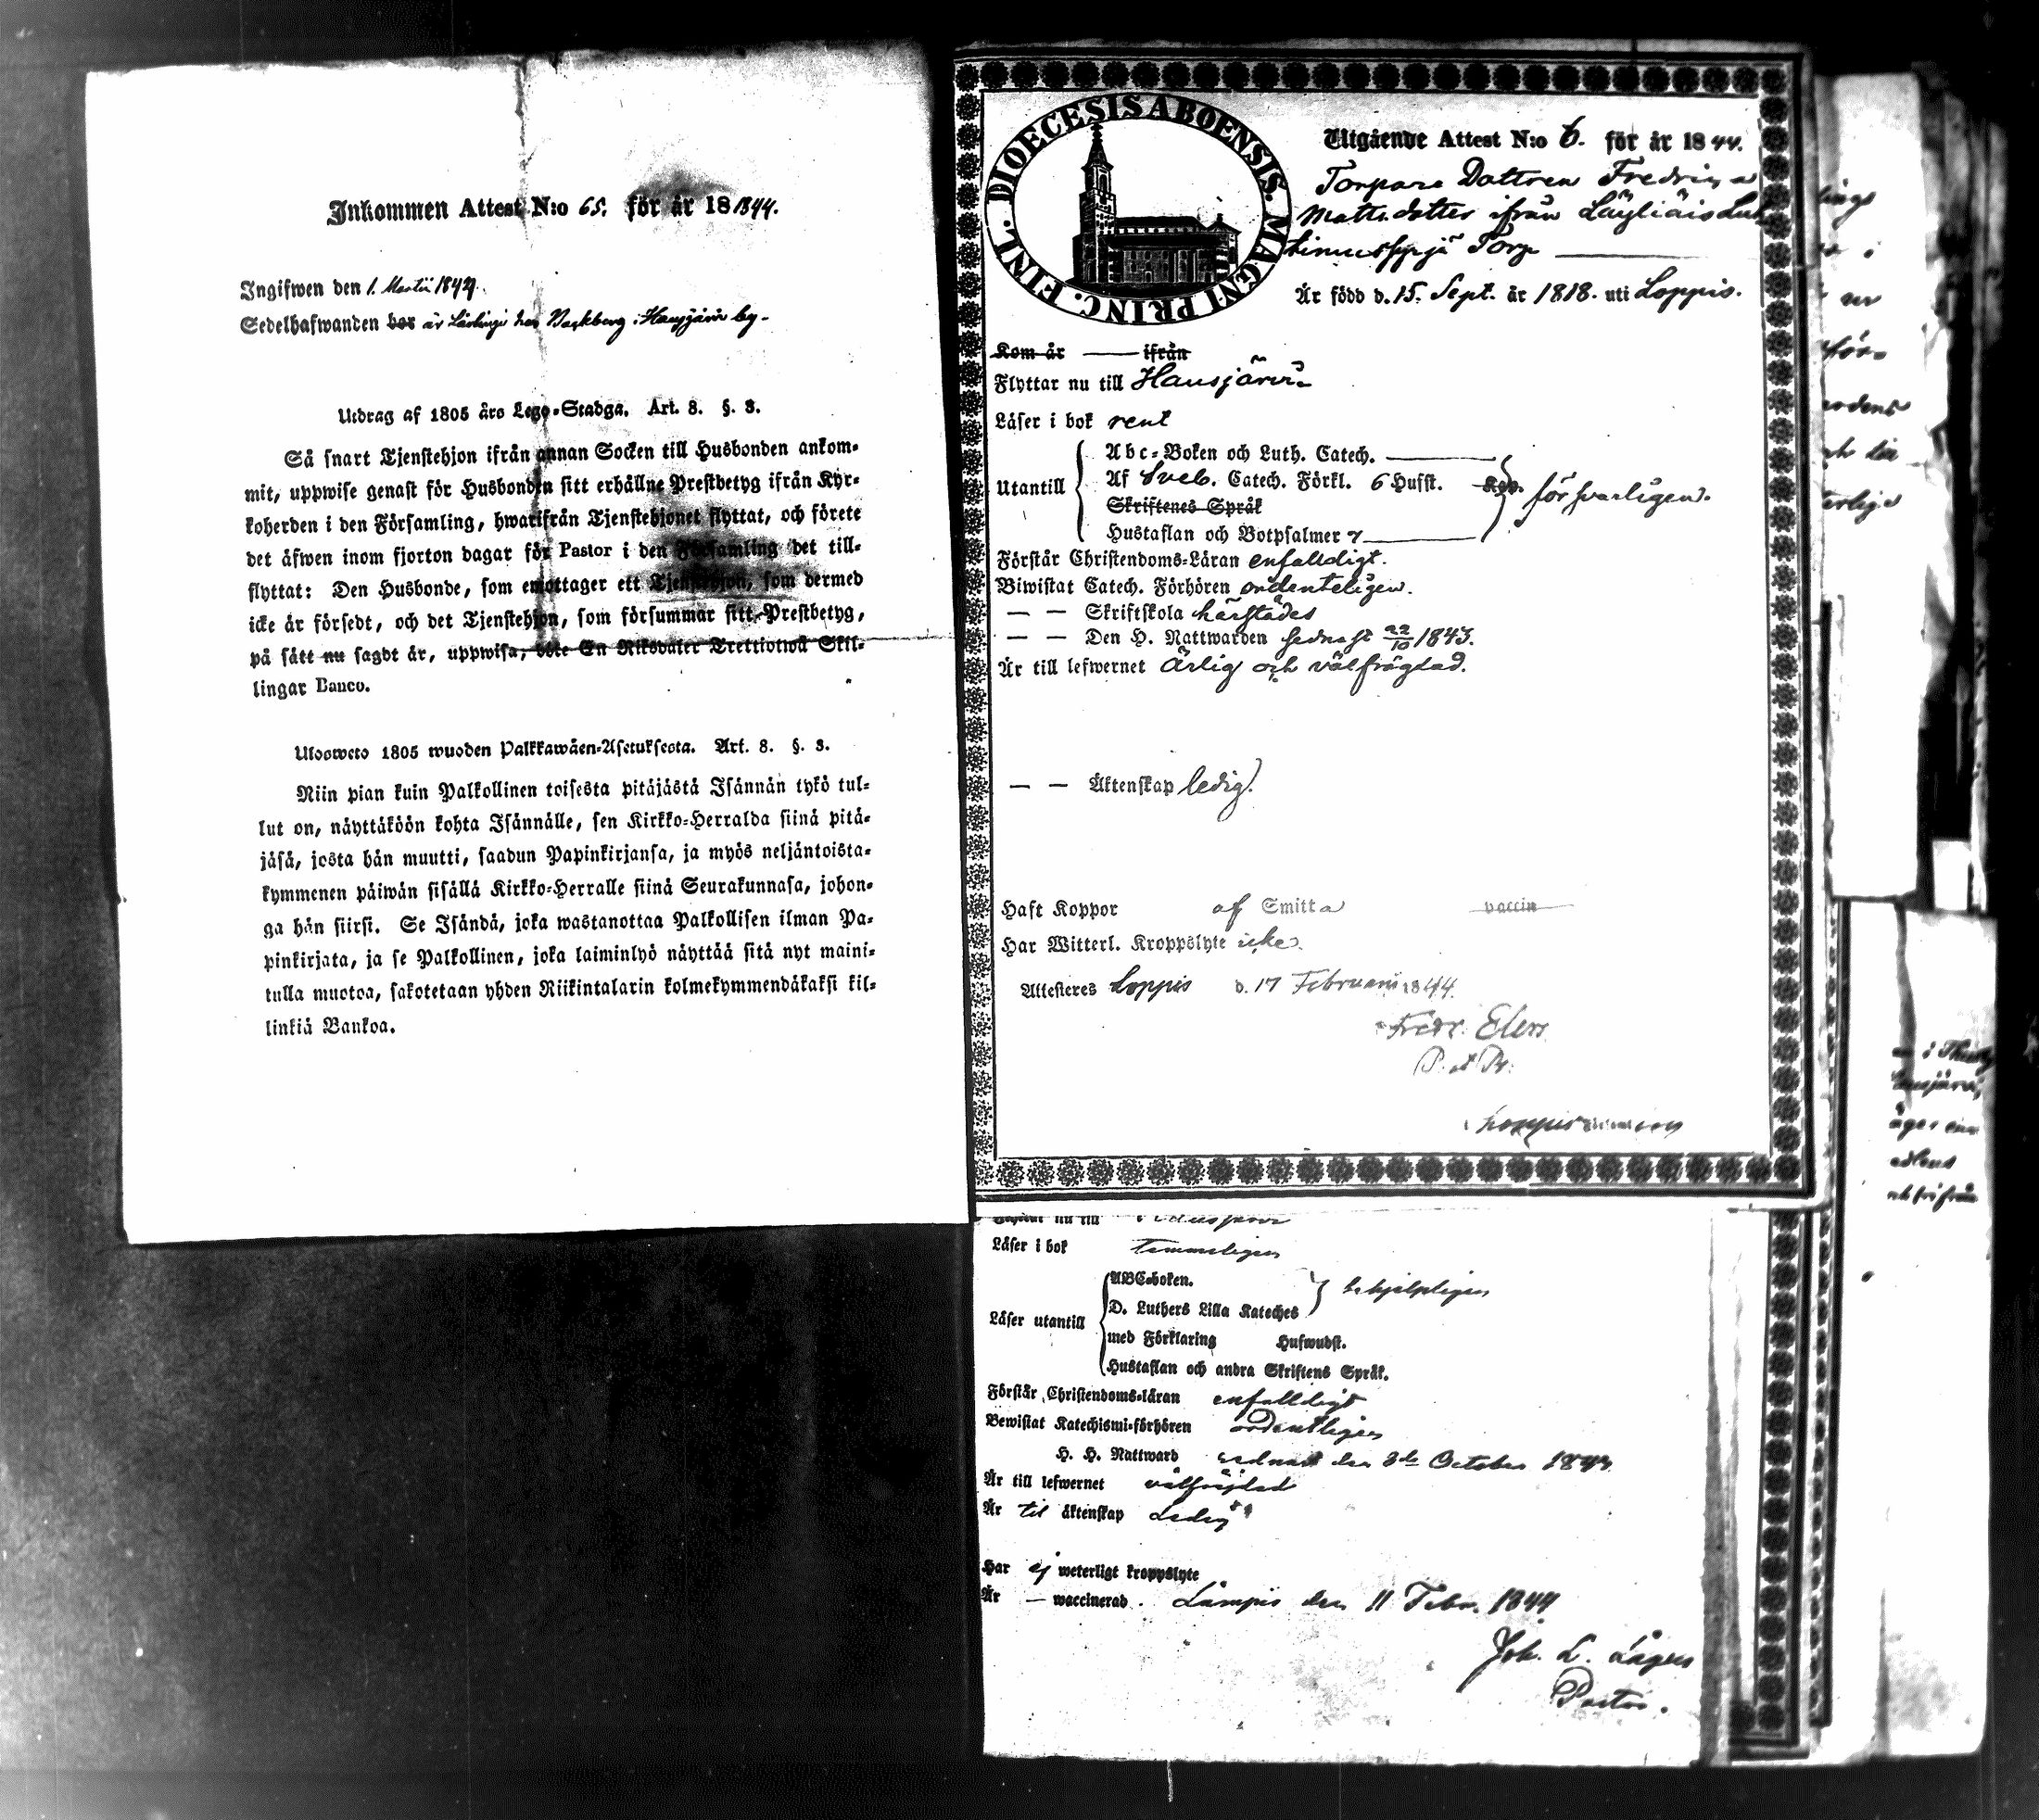 Inkommen Attest N:o 65. för år 18 1844.
Ingifwen den 1. Martii 1844.
Sedelhafwanden bor är Lärlinge hos Backberg i Hausjärvi by.
Utdrag af 1805 års Lego-Stadga. Art. 8. §. 3.
Så snart Tjenstehjon ifrån annan Socken till Husbonden ankom-
mit, uppwise genast för Husbonden sitt erhållne Prestbetyg ifrån Kyr-
koherden i den Församling, hwarifrån Tjenstehjonet flyttat, och förete
det äfwen inom fjorton dagar för Pastor i den Församling det till-
flyttat: Den Husbonde, som emottager ett Tjenstehjon, som dermed
icke är försedt, och det Tjenstehjon, som försummar sitt Prestbetyg,
på sätt nu sagdt är, uppwisa, böte En Riksdaler Trettiotwå Skil-
lingar Banco.
Ulosweto 1805 wuoden Palkkawäen-Asetuksesta. Art. 8. §. 3.
Niin pian kuin Palkollinen toisesta pitäjästä Isännän tykö tul-
lut on, näyttäköön kohta Isännälle, sen Kirkko-Herralda siinä pitä-
jäsä, josta hän muutti, saadun Papinkirjansa, ja myös neljäntoista-
kymmenen päiwän sisällä Kirkko-Herralle siinä Seurakunnasa, johon-
ga hän siirsi. Se Isändä, joka wastanottaa Palkollisen ilman Pa-
pinkirjata, ja se Palkollinen, joka laiminlyö näyttää sitä nyt maini-
tulla muotoa, sakotetaan yhden Riikintalarin kolmekymmendäkaksi kil-
linkiä Bankoa.
DIOECESIS ABOENSIS. MAGNI PRINC. FINL.
Utgående Attest N:o 6. för år 1844.
Torpare Dottren Fredrica
Mattsdotter ifrån Läyliäis
Torp
Är född d. 15. Sept. år 1818. uti Loppis.
Kom år ifrån
Flyttar nu till Hausjärvi
Läser i bok rent
Utantill
Abc-Boken och Luth. Catech.
Af Sveb. Catech. Förkl. 6 Hufst. Kap. försvarligen.
Skriftenes Språk
Hustaflan och Botpsalmer 7
Förstår Christendoms-Läran enfaldigt.
Biwistat Catech. Förhören ordenteligen.
— — Skriftskola härstädes
— — Den H. Nattwarden sednast 22/10 1843.
Är till lefwernet Ärlig och välfrägdad.
— — Äktenskap ledig.
Haft Koppor af Smitta vaccin
Har Witterl. Kroppslyte icke.
Attesteras Loppis d. 17 Februarii 1844.
Fredr. Elers
P. et Pr.
Loppis
Flyttar nu till Hausjärvi
Läser i bok temmeligen
Läser utantill
ABC-boken.
D. Luthers Lilla Kateches
behjelpligen
med Förklaring Hufwudst.
Hustaflan och andra Skriftens Språk.
Förstår Christendoms-läran enfaldigt
Bewistat Katechismi-förhören ordentligen
H. H. Nattward sednast den 3de October 1843
Är till lefwernet välfrejdad
Är til äktenskap Ledig
Har ej weterligt kroppslyte
Är — waccinerad. Lampis den 11 Febr. 1844
Joh. L.
Pastor.